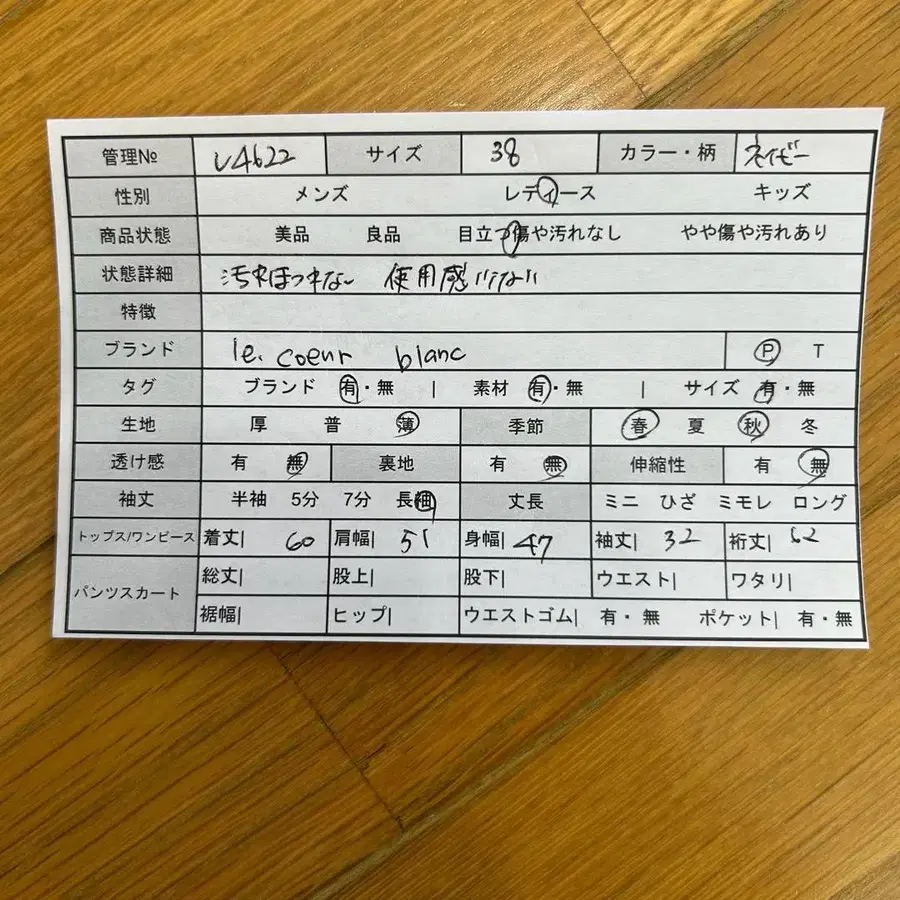 管理№ U4622 サイズ 38 カラー・柄 ネイビー
性別 メンズ レディース キッズ
商品状態 美品 良品 目立つ傷や汚れなし やや傷や汚れあり
状態詳細 汚れほつれない 使用感
特徴
ブランド le. coeur blanc P T
タグ ブランド 有・無 | 素材 有・無 | サイズ 有・無
生地 厚 普 薄 季節 春 夏 秋 冬
透け感 有 無 裏地 有 無 伸縮性 有 無
袖丈 半袖 5分 7分 長袖 丈長 ミニ ひざ ミモレ ロング
トップス/ワンピース 着丈| 60 肩幅| 51 身幅| 47 袖丈| 32 裄丈| 62
パンツスカート 総丈| 股上| 股下| ウエスト| ワタリ|
裾幅| ヒップ| ウエストゴム| 有・無 ポケット| 有・無